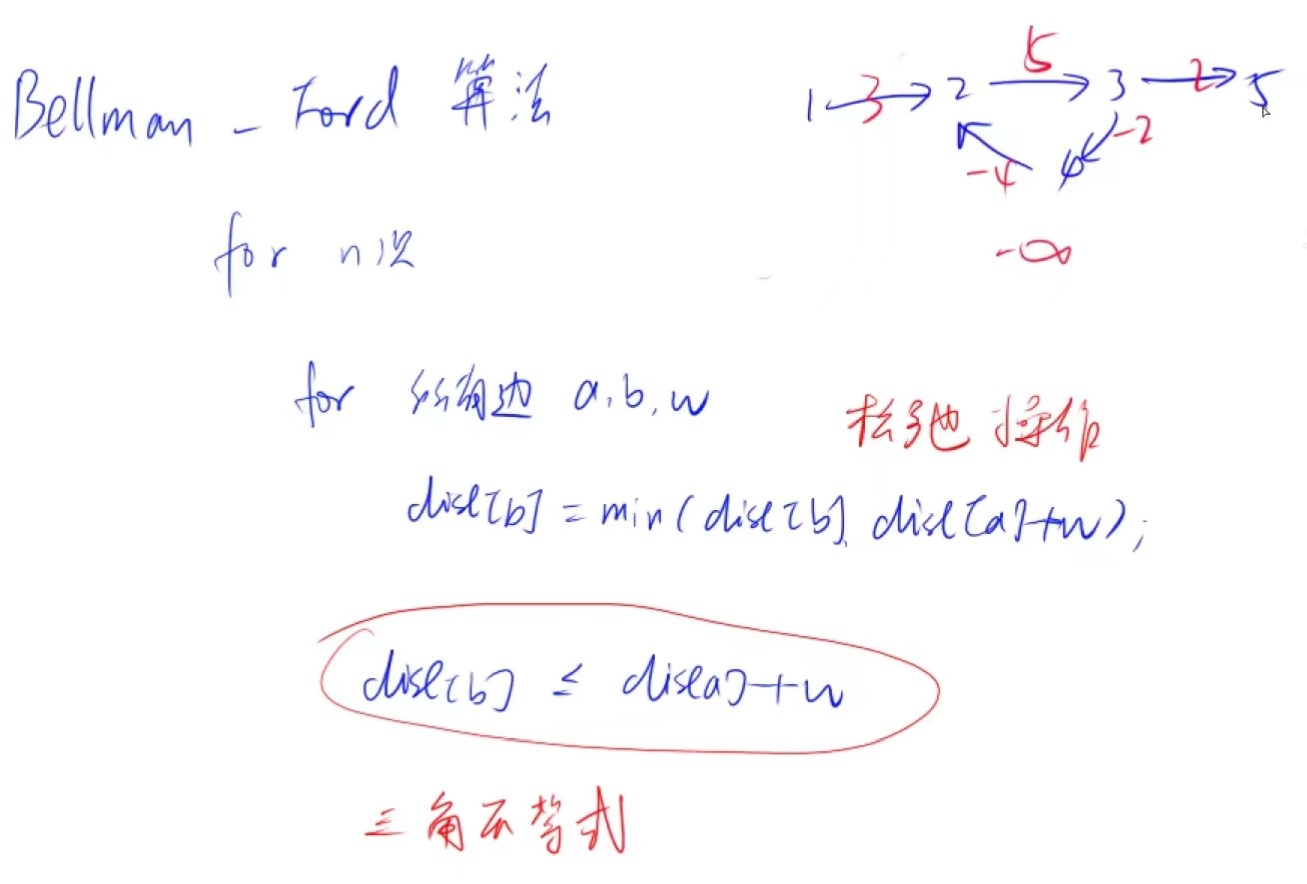 Bellman - Ford 算法
1 3 2 5 3 2 5
-4 4 -2
-∞
for n次
for 所有边 a,b,w
松弛操作
dist[b] = min(dist[b], dist[a]+w);
dist[b] ≤ dist[a]+w
三角不等式